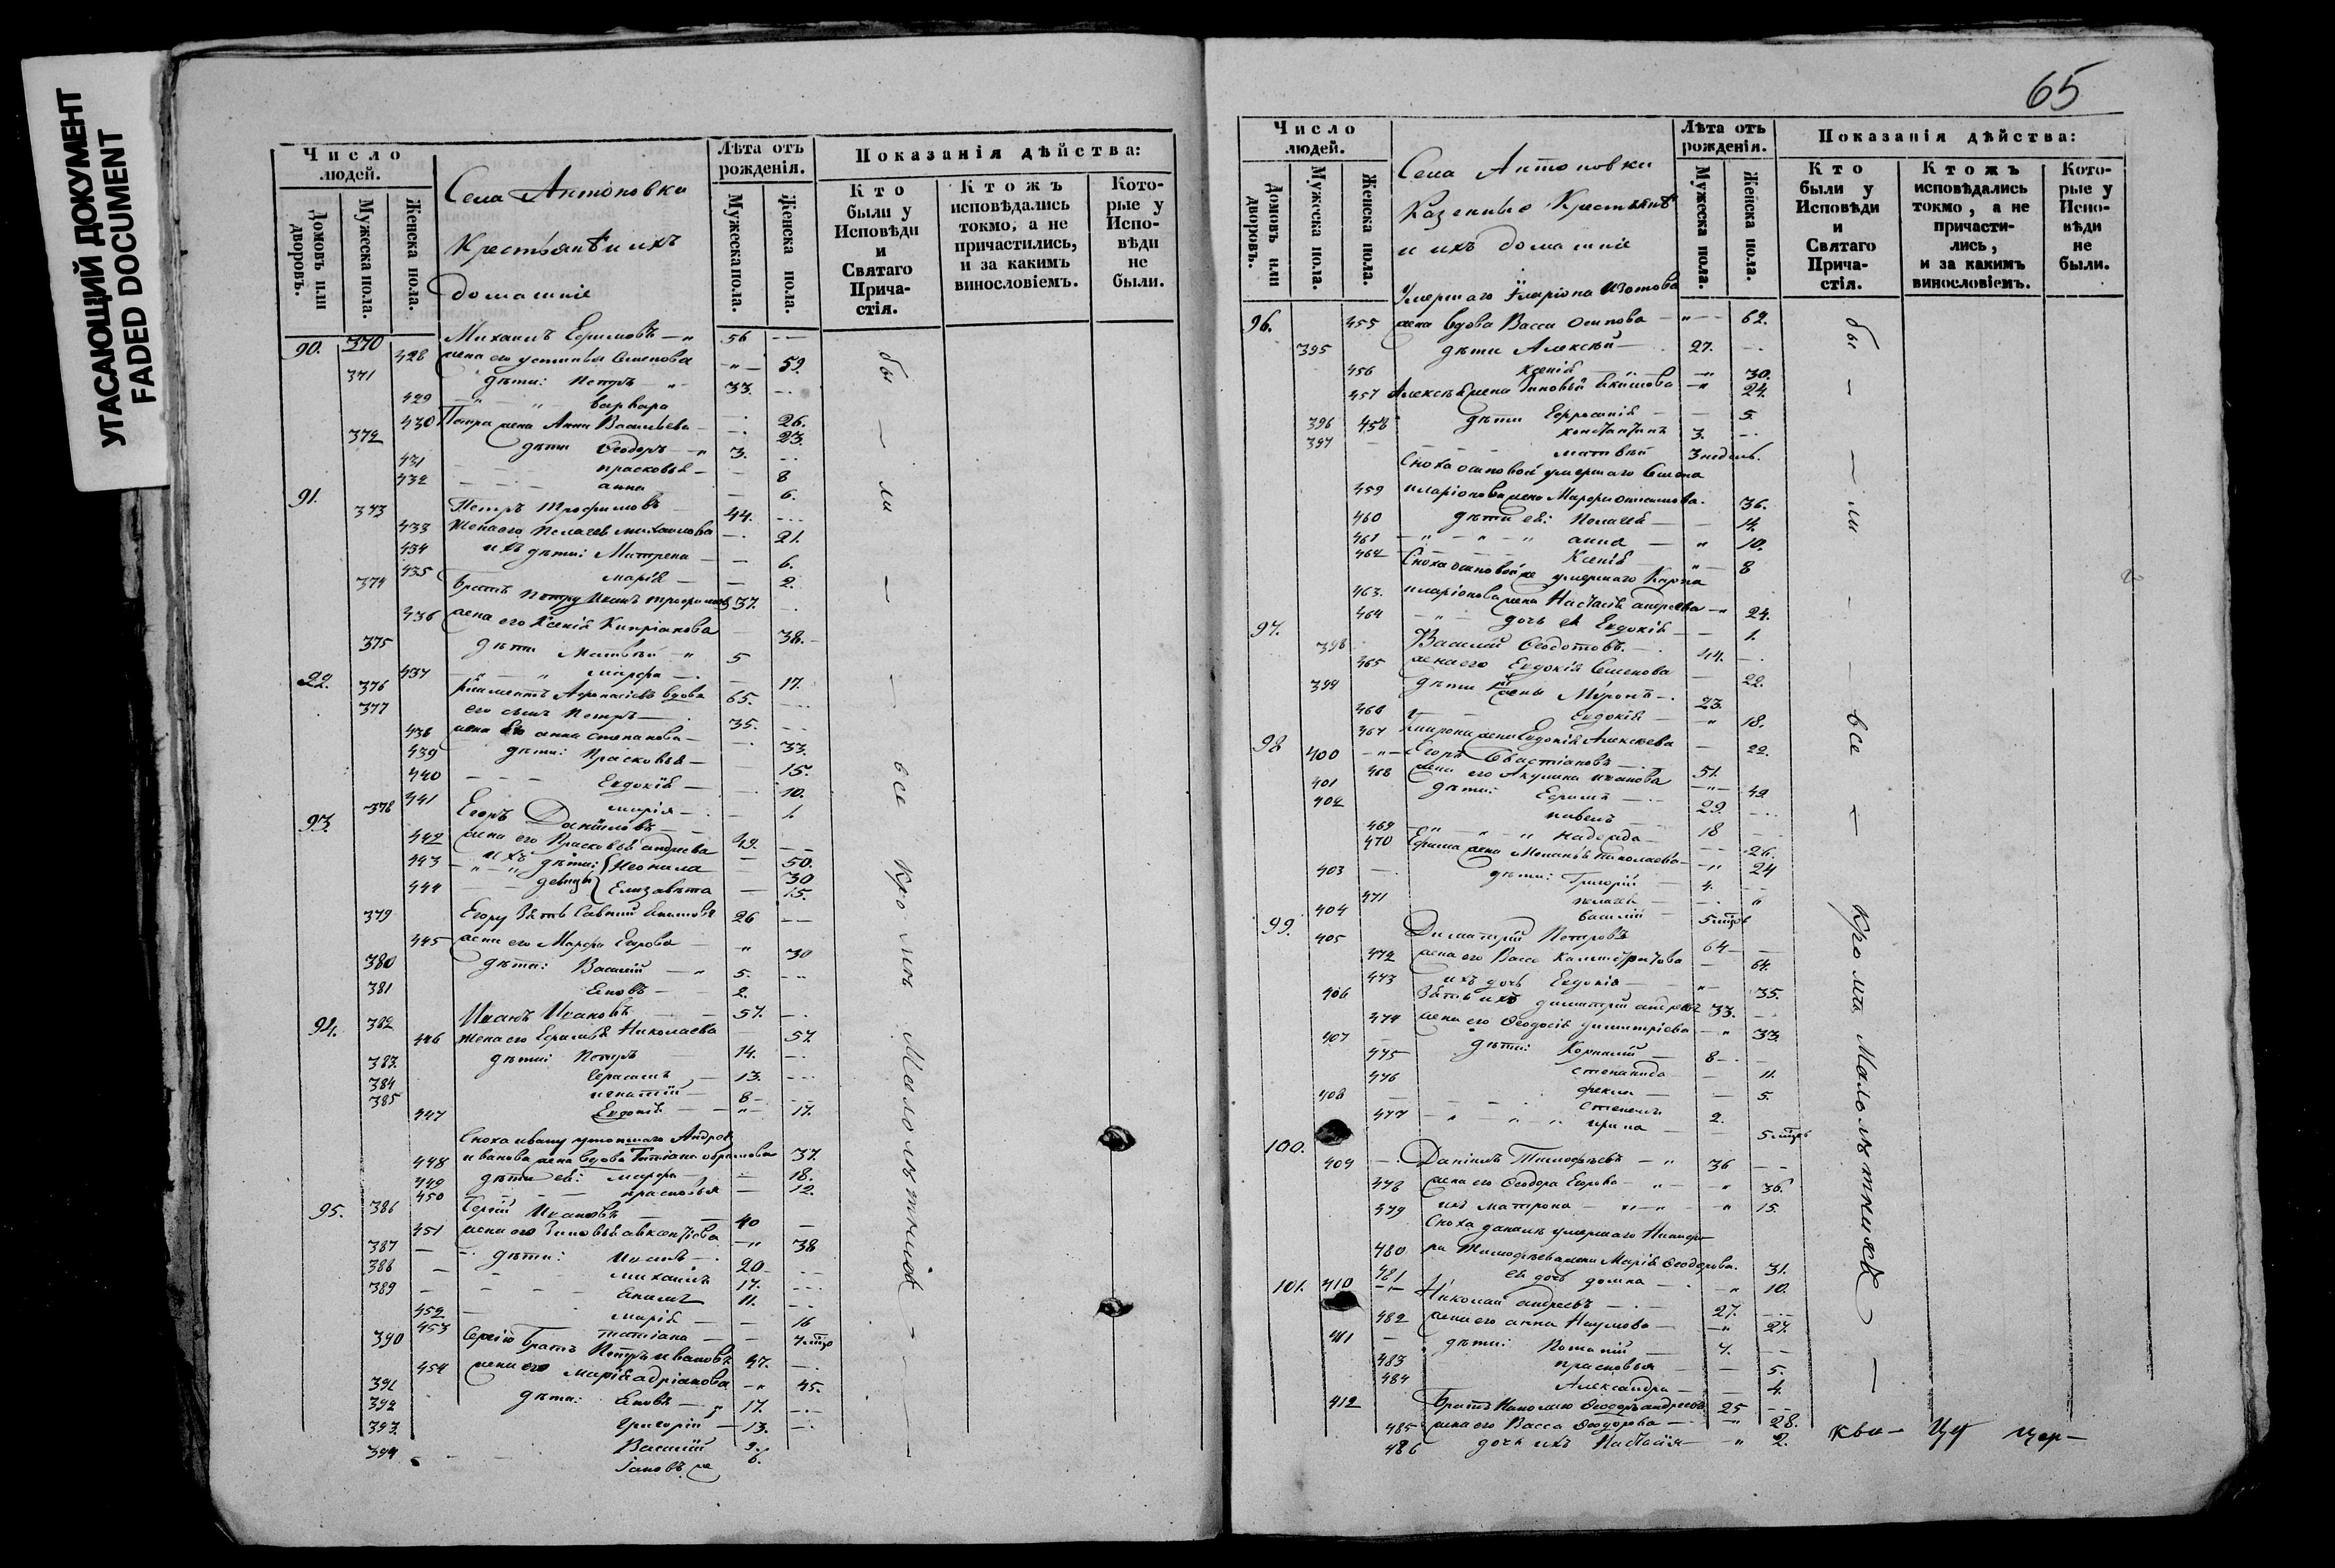 УГАСАЮЩИЙ ДОКУМЕНТ
FADED DOCUMENT
Число людей.
Домовъ или дворовъ.
Мужеска пола.
Женска пола.
Села Антоновка
Крестьянѣ и ихъ
домашніе
Лѣта отъ рожденія.
Мужеска пола.
Женска пола.
Показанія дѣйства:
Кто были у Исповѣди и Святаго Причастія.
Ктожъ исповѣдались токмо, а не причастились, и за какимъ винословіемъ.
Которые у Исповѣди не были.
90. 370 Михаилъ Ефимовъ 56
428 жена его Устинья Семенова 59.
371 дѣти: Петръ 33.
429 варвара 26.
430 Петра жена Анна Васильева 23.
372 дѣти Ѳеодоръ 3.
431 прасковья 8
432 анна 6.
91. 373 Петръ Трофимовъ 44.
433 Жена его Пелагея михаилова 21.
434 ихъ дѣти: Матрена 6.
435 марія 2.
374 Братъ Петру Иванъ трофимовъ 37.
436 жена его Ксенія Кипріанова 38.
375 дѣти Матвѣй 5
437 марфа 17.
92. 376 Климентъ Афанасьевъ вдовъ 65.
377 его сынъ Петръ 35.
438 жена его анна степанова 33.
439 дѣти: Прасковья 15.
440 Евдокія 10.
441 марія 1.
93. 378 Егоръ Даниловъ 49.
442 жена его Прасковья андреева 50.
443 ихъ дѣти: Неонила 30
444 девицы Елизавета 15.
379 Егору зять Савелій 26
445 жена его Марфа Егорова 30
380 дѣти: Василій 5.
381 Яковъ 2.
94. 382 Иванъ Ивановъ 57.
446 жена его Ефимья Николаева 57.
383. дѣти: Петръ 14.
384 Герасимъ 13.
385 игнатій 8
447 Евдокія 17.
Сноха ивану умершаго Андрея
448 иванова жена вдова Татіана 37.
449 дѣти ея: марфа 18.
450 прасковья 12.
95. 386 Сергій Ивановъ 40
451 жена его Зиновья 38
387 дѣти: Иванъ 20
388 михаилъ 17.
389 Акимъ 11.
452 марія 16
453 татіана
390 Сергію Братъ Петръ ивановъ 47.
454 жена его марія адріанова 45.
391 дѣти: Яковъ 17.
392 григорій 13.
393. Василій 9.
394 Іаковъ же 6.
бы — ли — все кромѣ Малолѣтнихъ
65
Число людей.
Домовъ или дворовъ.
Мужеска пола.
Женска пола.
Села Антоновки
Казенные Крестьянѣ
и ихъ домашніе
Лѣта отъ рожденія.
Мужеска пола.
Женска пола.
Показанія дѣйства:
Кто были у Исповѣди и Святаго Причастія.
Ктожъ исповѣдались токмо, а не причастились, и за какимъ винословіемъ.
Которые у Исповѣди не были.
Умершаго Иларіона Изотова
96. 455 жена вдова Васса Осипова 62.
395 дѣти Алексѣй 27.
456 Ксенія 30.
457 Алексѣя жена Зиновья 24.
458 дѣти Ефросинія 5.
396 константинъ 3.
397 матвѣй 3 недель.
Сноха осиповой умершаго Семена
459 иларіонова жена Марфа 36.
460 дѣти ея: Пелагея 14.
461 анна 10.
462 Ксенія 8
Сноха осиповой же умершаго Карпа
463. иларіонова жена Настасья андреева 24.
464 дочь ея Евдокія 1.
97. 398 Василій Ѳедотовъ 44.
465 жена его Евдокія Семенова 22.
399 дѣти 1й жены Миронъ 23.
466 Евдокія 18.
467 Мирона жена Евдокія Алексѣева 22.
98 400 Егоръ Севастіановъ 51.
468 жена его Акулина иванова 49.
401 дѣти: Ефимъ 29.
402 павелъ 18
469 надежда 26.
470 Ефима жена Меланья николаева 24
403 дѣти: Григорій 4.
471 пелагея 6
404 василій
99. 405 Димитрій Петровъ 64
472 жена его Васса 64.
473 ихъ дочь Евдокія 35.
406 Зять ихъ димитрій андреевъ 33.
474 жена его Ѳеодосія димитріева 33.
407 дѣти: Корнилій 8
475 степанида 11.
476 фекла 5.
408 степанъ 2.
477 ирина
100. 409 Даніилъ Тимофѣевъ 36
478 жена его Ѳеодора Егорова 36.
479 их матрона 15.
Сноха даниилѣ умершаго Никифо
480 ра Тимофѣева жена Марія Ѳеодорова. 31.
481 ея дочь домна 10.
101. 410 Николай андреевъ 27.
482 жена его анна Наумова 27.
411 дѣти: Потапій 7.
483 прасковья 5.
484 Александра 4.
412 братъ Николаю Ѳеодоръ андреевъ 25
485 жена его Васса Ѳеодорова 28.
486 дочь ихъ Настасія 2.
бы — ли — все — кромѣ Малолѣтнихъ